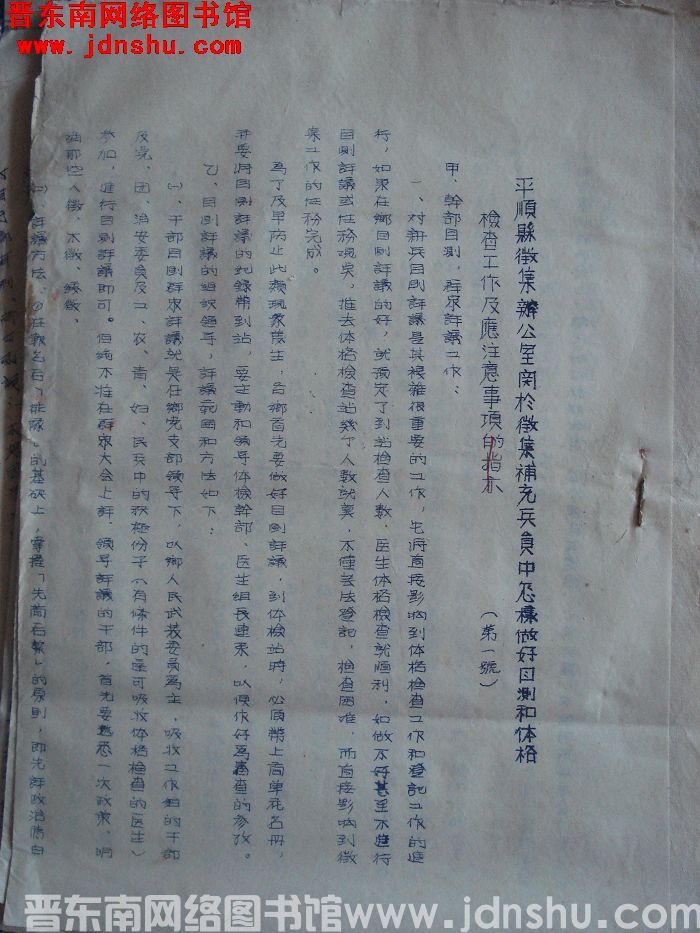 晋东南网络图书馆
www.jdnshu.com
平順縣徵集辦公室関於徵集補充兵員中怎樣做好目測和体格
檢查工作及應注意事項的指示
(第一號)
甲、幹部目測,群众評議工作:
一、对新兵目測評議是其複雜很重要的工作,它將直接影响到体格檢查工作和登記工作的進
行,如果在鄉目測評議的好,就預定了到站檢查人数,医生体格檢查就順利,如做不好甚至不進行
目測評議或任務观点,推去体格檢查站幾个人数就算,不僅無法登記,檢查困难,而直接影响到徵
集工作的任務完成。
為了及早防止此類現象產生,各鄉首先要做好目測評議,到体檢站時,必須帶上簡單花名册,
并要將目測評議的紀錄帶到站,要主動和領导体檢幹部、医生組長連系,以便作好為審查的参攷。
乙、目測評議的組織領导,評議範囲和方法如下:
㈠、干部目測群众評議就是在鄉党支部領导下,以鄉人民武装委員為主,吸收工作組的干部
及党、团、治安委員及工、农、青、妇、民兵中的积極份子(有條件的最可吸收体格檢查的医生)
参加,進行目測評議即可。但絕不准在群众大会上評,領导評議的干部,首先要熟悉一次政策,明
确那些人徵、不徵、緩徵。
㈡、評議方法:①在報名后「排隊」的基礎上,掌握「先简后繁」的原則,即先評政治清白
晋东南网络图书馆 www.jdnshu.com